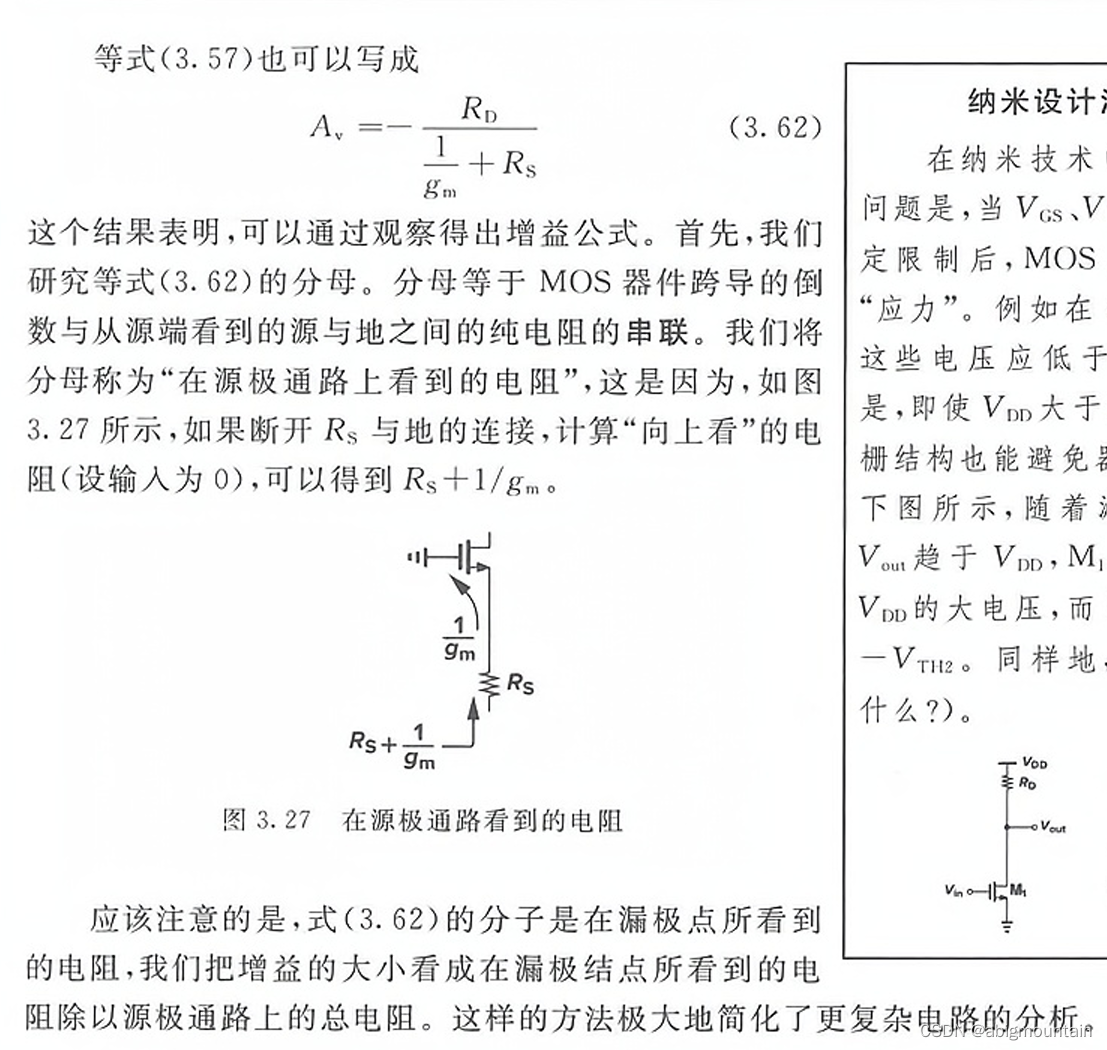 等式(3.57)也可以写成
A_v = - R_D / (1/g_m + R_S) (3.62)
这个结果表明,可以通过观察得出增益公式。首先,我们
研究等式(3.62)的分母。分母等于 MOS 器件跨导的倒
数与从源端看到的源与地之间的纯电阻的串联。我们将
分母称为“在源极通路上看到的电阻”,这是因为,如图
3.27 所示,如果断开 R_S 与地的连接,计算“向上看”的电
阻(设输入为 0),可以得到 R_S+1/g_m。
1/g_m
R_S
R_S+1/g_m
图 3.27 在源极通路看到的电阻
应该注意的是,式(3.62)的分子是在漏极点所看到
的电阻,我们把增益的大小看成在漏极结点所看到的电
阻除以源极通路上的总电阻。这样的方法极大地简化了更复杂电路的分析。
纳米设计
在纳米技术
问题是,当 V_GS、V
定限制后,MOS
“应力”。例如在
这些电压应低于
是,即使 V_DD 大于
栅结构也能避免
下图所示,随着
V_out 趋于 V_DD,M_1
V_DD 的大电压,而
-V_TH2。同样地,
什么?)。
V_DD
R_D
V_out
V_in M_1
CSDN @abigmountain